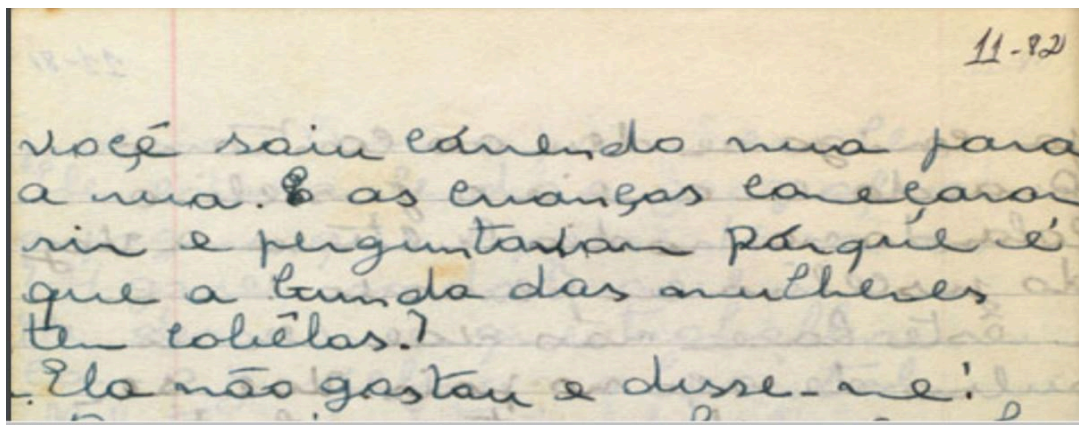 11-82
voçê saiu cárrendo nua para
a rua. E as crianças começaram
rir e perguntavam pórquê é
que a bunda das mulheres
tem cabêlos?
. Ela não gostou e disse-me!